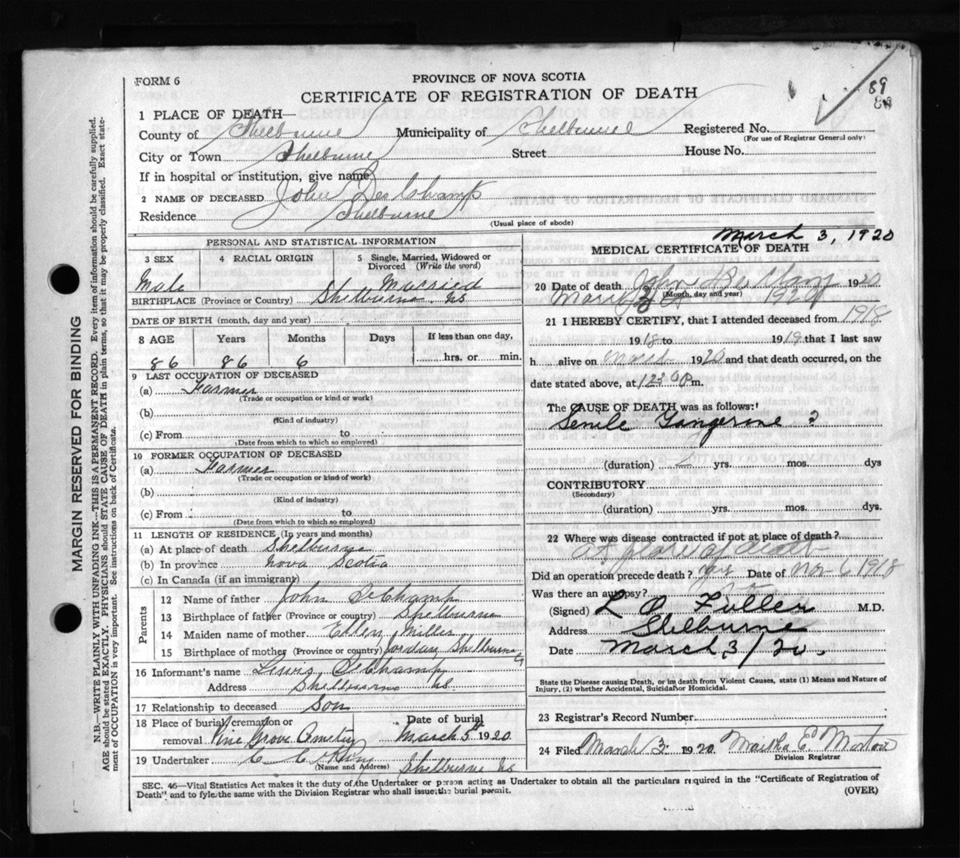 FORM 6
PROVINCE OF NOVA SCOTIA
CERTIFICATE OF REGISTRATION OF DEATH
89
1 PLACE OF DEATH—
County of Shelburne Municipality of Shelburne Registered No.
(For use of Registrar General only)
City or Town Shelburne Street House No.
If in hospital or institution, give name
2 NAME OF DECEASED John Deschamp
Residence Shelburne
(Usual place of abode)
PERSONAL AND STATISTICAL INFORMATION
3 SEX 4 RACIAL ORIGIN 5 Single, Married, Widowed or Divorced (Write the word)
Male Married
BIRTHPLACE (Province or Country) Shelburne NS
DATE OF BIRTH (month, day and year)
8 AGE Years Months Days If less than one day,
86 86 6 hrs. or min.
9 LAST OCCUPATION OF DECEASED
(a) Farmer
(Trade or occupation or kind or work)
(b)
(Kind of industry)
(c) From to
(Date from which to which so employed)
10 FORMER OCCUPATION OF DECEASED
(a) Farmer
(Trade or occupation or kind or work)
(b)
(Kind of industry)
(c) From to
(Date from which to which so employed)
11 LENGTH OF RESIDENCE (In years and months)
(a) At place of death Shelburne
(b) In province Nova Scotia
(c) In Canada (if an immigrant)
Parents
12 Name of father John DeChamp
13 Birthplace of father (Province or country) Shelburne
14 Maiden name of mother Ellen Millis
15 Birthplace of mother (Province or country) Jordan Shelburne
16 Informant's name Lewis DeChamp
Address Shelburne NS
17 Relationship to deceased Son
18 Place of burial, cremation or removal Pine Grove Cemetery Date of burial March 5th 1920
19 Undertaker C C King Shelburne NS
(Name and Address)
March 3, 1920
MEDICAL CERTIFICATE OF DEATH
20 Date of death 1920
(Month, day and year)
March 3 1920
21 I HEREBY CERTIFY, that I attended deceased from 1918
1918 to 1919 that I last saw
h alive on March 1920 and that death occurred, on the
date stated above, at 12 30 P m.
The CAUSE OF DEATH was as follows:
Senile Gangrene ?
(duration) yrs. mos. dys
CONTRIBUTORY
(Secondary)
(duration) yrs. mos. dys
22 Where was disease contracted if not at place of death?
at place of death
Did an operation precede death? yes Date of Nov 6 1918
Was there an autopsy?
(Signed) L O Fuller M.D.
Address Shelburne
Date March 3/20.
State the Disease causing Death, or in death from Violent Causes, state (1) Means and Nature of
Injury, (2) whether Accidental, Suicidal or Homicidal.
23 Registrar's Record Number
24 Filed March 3 1920 Martha E Morton
Division Registrar
SEC. 46—Vital Statistics Act makes it the duty of the Undertaker or person acting as Undertaker to obtain all the particulars required in the "Certificate of Registration of
Death" and to fyle the same with the Division Registrar who shall issue the burial permit.
(OVER)
MARGIN RESERVED FOR BINDING
N.B.—WRITE PLAINLY WITH UNFADING INK—THIS IS A PERMANENT RECORD. Every item of information should be carefully supplied.
AGE should be stated EXACTLY. PHYSICIANS should STATE CAUSE OF DEATH in plain terms, so that it may be properly classified. Exact state-
ment of OCCUPATION is very important. See instructions on back of Certificate.